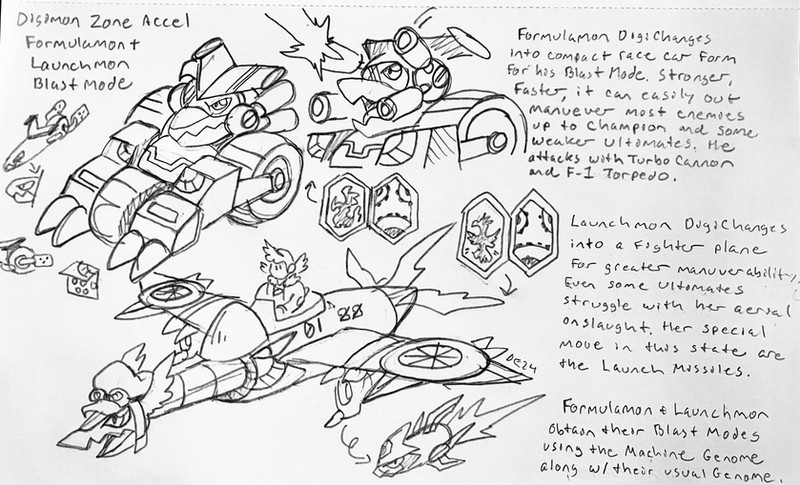 Digimon Zone Accel
Formulamon +
Launchmon
Blast Mode
Formulamon DigiChanges
into compact race car form
for his Blast Mode. Stronger,
faster, it can easily out
manuever most enemies
up to Champion and some
weaker Ultimates. He
attacks with Turbo Cannon
and F-1 Torpedo.
Launchmon DigiChanges
into a Fighter plane
for greater manuverability.
Even some Ultimates
struggle with her aerial
onslaught. Her special
move in this state are
the Launch Missiles.
01 88
DC24
Formulamon + Launchmon
obtain their Blast Modes
using the Machine Genome
along w/ their usual Genome.